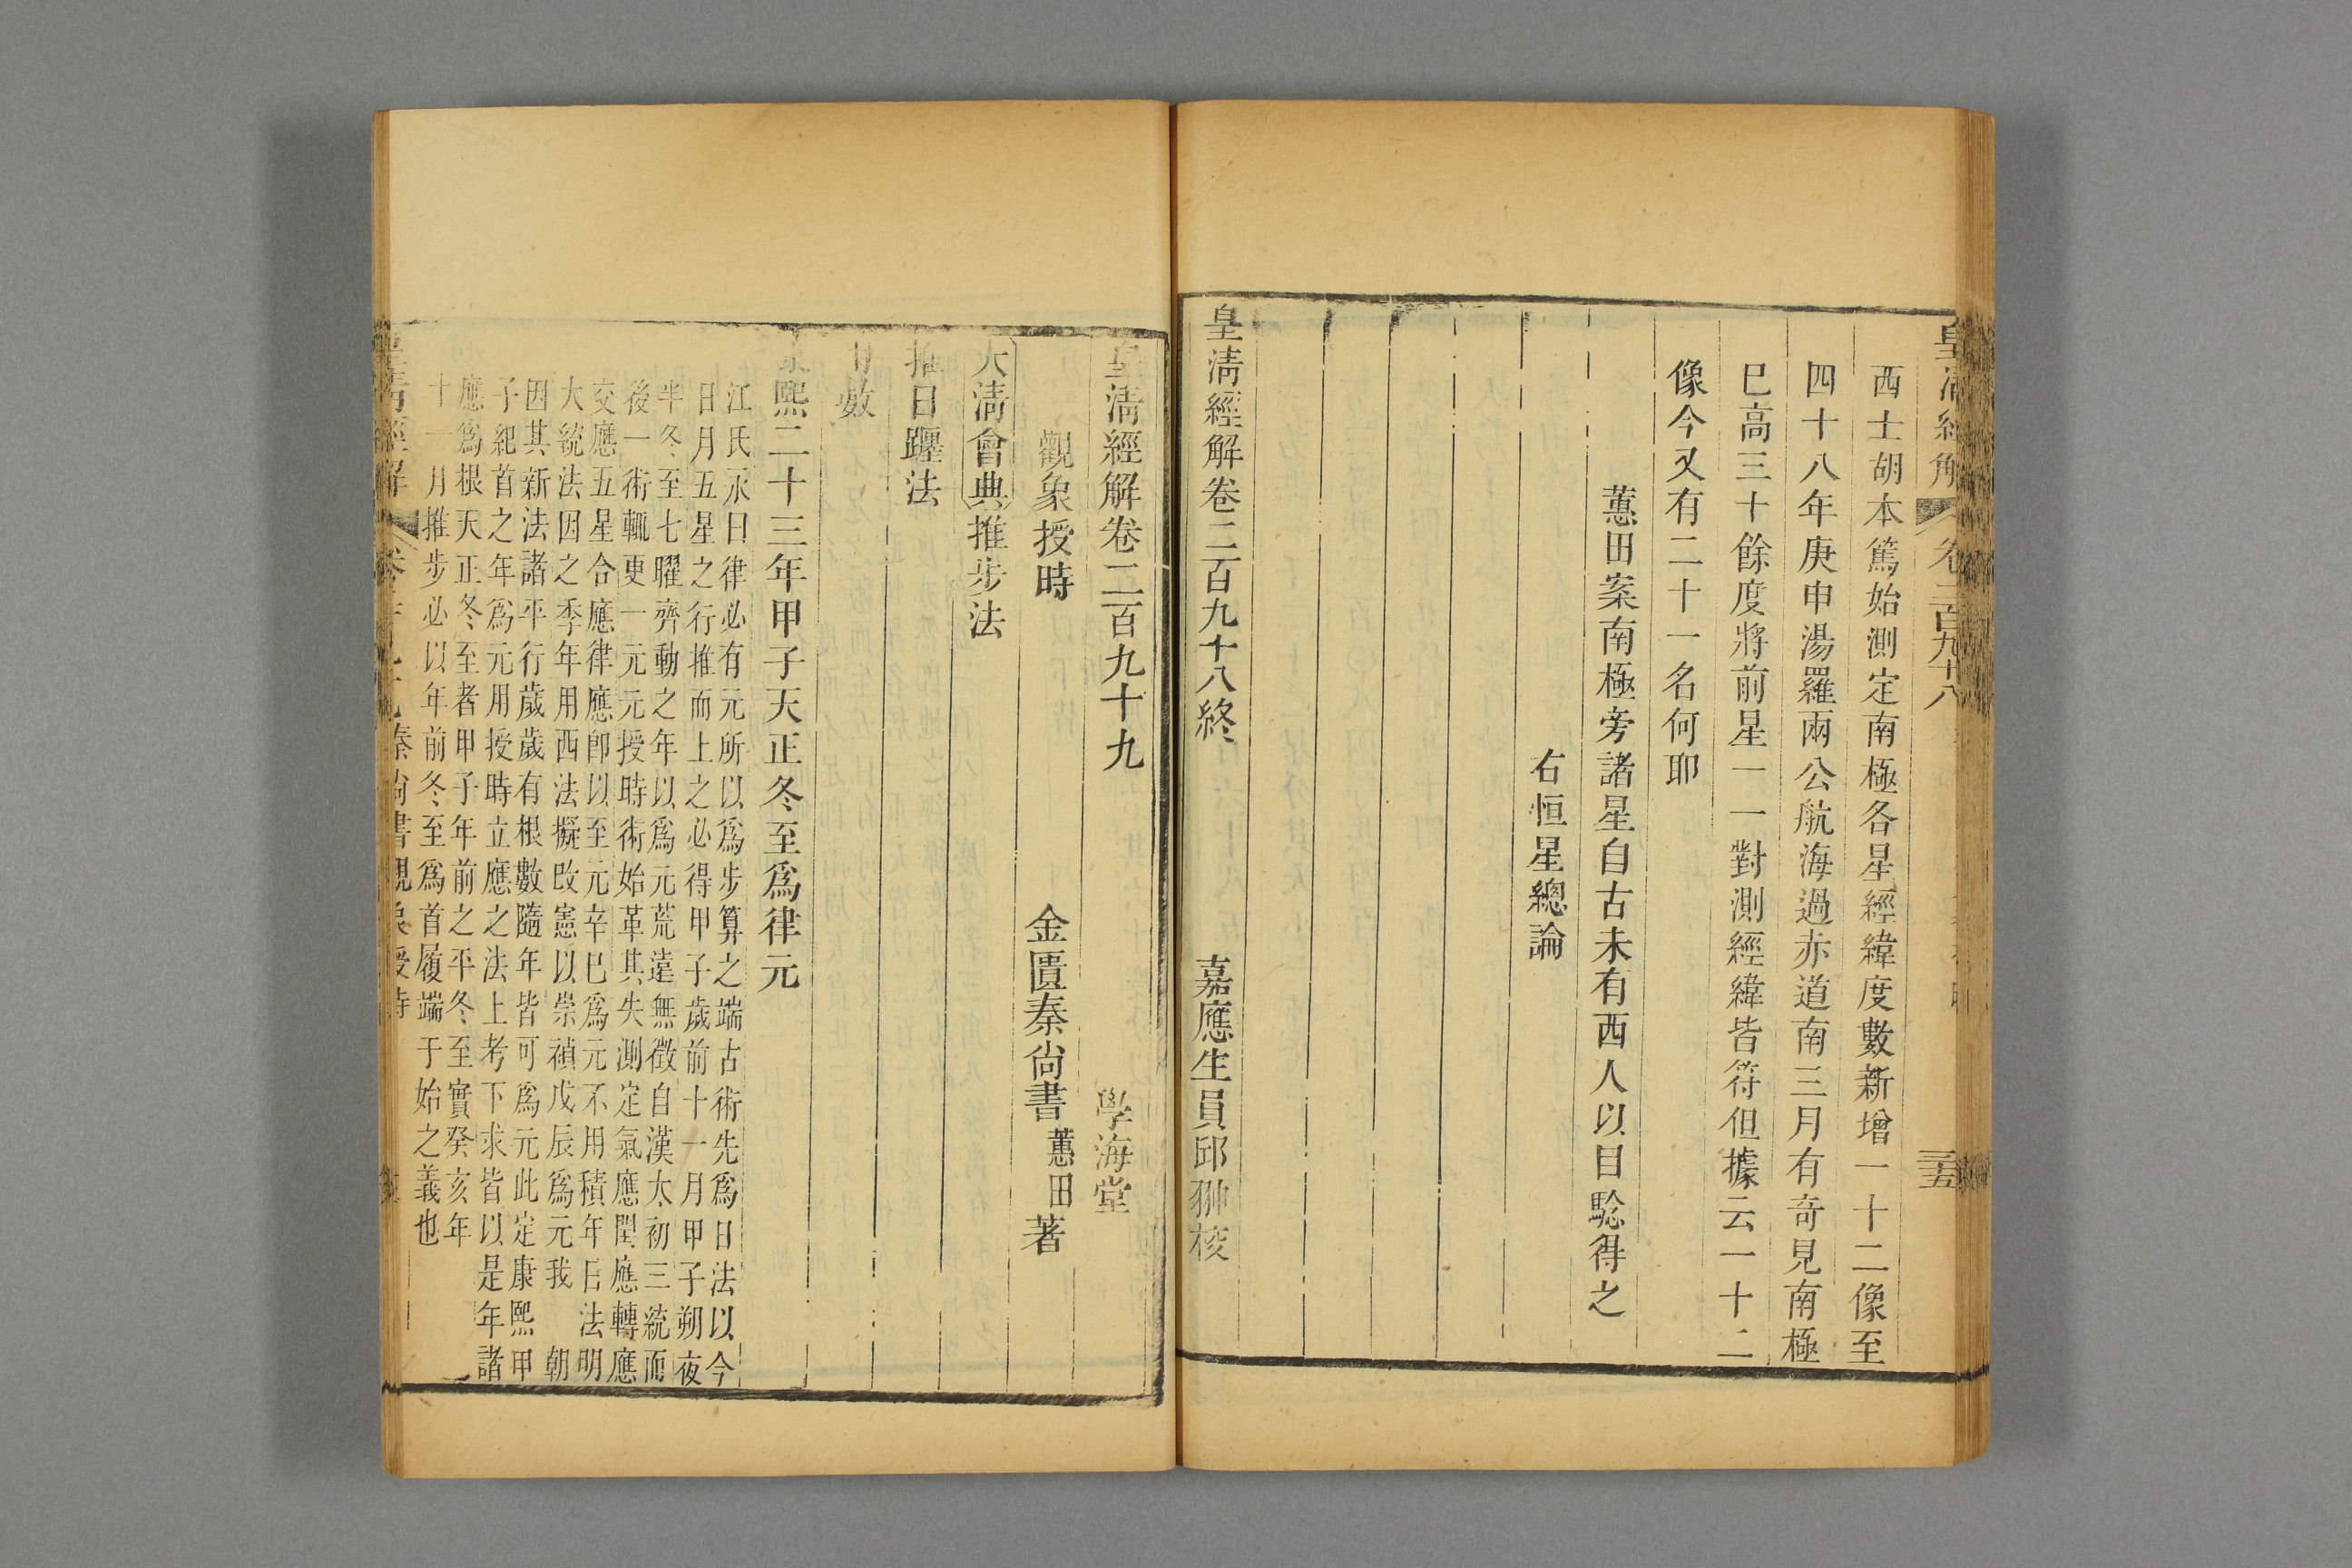 皇清經解
卷二百九十八
三五
西士胡本篤始測定南極各星經緯度數新增一十二像至
四十八年庚申湯羅兩公航海過赤道南三月有奇見南極
巳高三十餘度將前星一一對測經緯皆符但據云一十二
像今又有二十一名何耶
蕙田案南極旁諸星自古未有西人以目驗得之
右恒星總論
皇清經解卷二百九十八終
嘉應生員邱翀校
皇清經解卷二百九十九
學海堂
觀象授時
金匱秦尚書蕙田著
大清會典推步法
推日躔法
用數
康熙二十三年甲子天正冬至爲律元
江氏永曰律必有元所以爲步算之端古術先爲日法以今
日月五星之行推而上之必得甲子歲前十一月甲子朔夜
半冬至七曜齊動之年以爲元荒遠無徵自漢太初三統而
後一術輒更一元元授時術始革其失測定氣應閏應轉應
交應五星合應律應卽以至元辛巳爲元不用積年日法明
大統法因之季年用西法擬改憲以崇禎戊辰爲元我 朝
因其新法諸平行歲歲有根數隨年皆可爲元此定康熙甲
子紀首之年爲元用授時立應之法上考下求皆以是年諸
應爲根天正冬至者甲子年前之平冬至實癸亥年
十一月推步必以年前冬至爲首履端于始之義也
皇清經解
秦尚書觀象授時